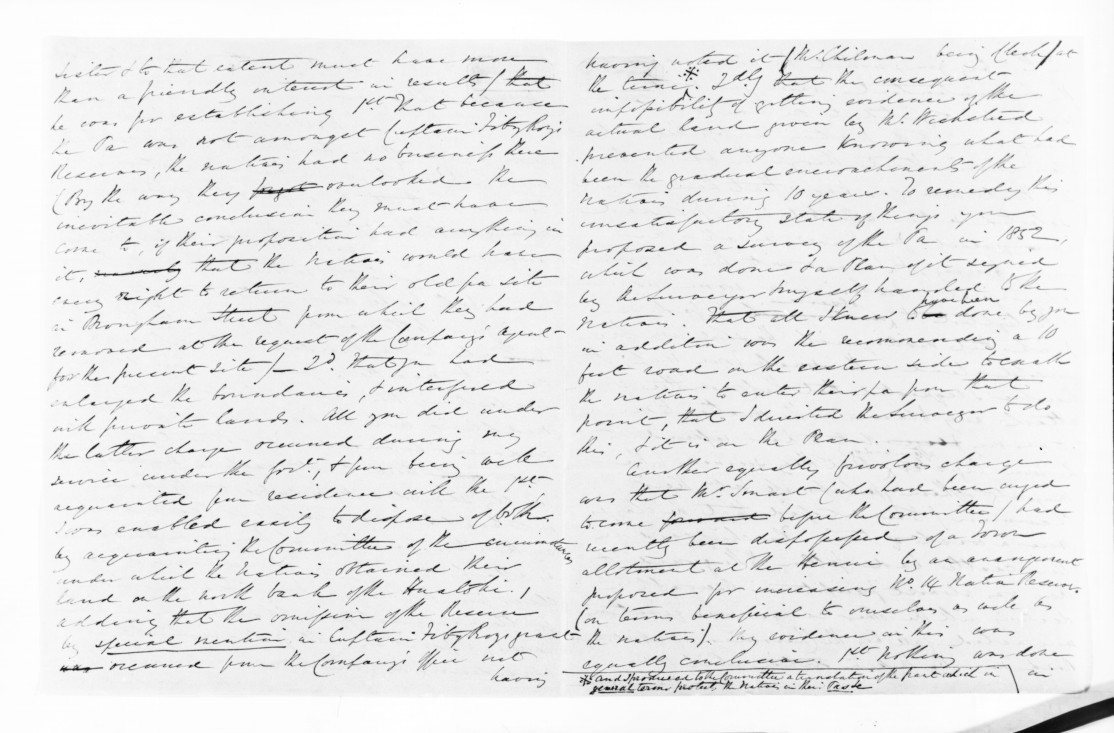 sister & to that extent must have more
than a friendly interest in results) that
he was for establishing 1st That because
the Pa was not amongst Captain Fitz Roy's
Reserves, the natives had no business there
(By the way they forgot overlooked the
inevitable conclusion they must have
come to, if their proposition had anything in
it, namely that the natives would have
every right to return to their old pa site
in Brougham Street from which they had
removed at the request of the Company's agent
for the present site)_ 2d. That you had
enlarged the boundaries, & interfered
with private lands. All you did under
the latter charge occurred during my
service under the Govt., & from being well
acquainted from residence with the 1st,
I was enabled easily to dispose of both.
by acquainting the Committee of the circumstances
under which the Natives obtained their
land on the north bank of the Huatoki,
adding that the omission of the Reserve
by special mention in Captain Fitz Roy's grant
was occurred from the Company's office not
having
having noted it (Mr. Chilman being Clerk) at
the time.* 2dly that the consequent
impossibility of getting evidence of the
actual land given by Mr. Wicksteed
prevented anyone knowing what had
been the gradual encroachments of the
natives during 10 years. To remedy this
unsatisfactory state of things you
proposed a Survey of the Pa in 1852,
which was done & a Plan of it signed
by the Surveyor & myself handed to the
Natives. That all I knew to have been done by you
in addition was the recommending a 10
feet road on the eastern side to enable
the natives to enter their pa from that
point, that I directed the Surveyor to do
this, & it is on the Plan.
Another equally frivolous charge
was that Mr. Smart (who had been urged
to come forward before the Committee) had
recently been dispossessed of a Town
allotment at the Henui by an arrangement
proposed for increasing No. 14 Native Reserve
(on terms beneficial to ourselves as well as
the natives). My evidence in this was
equally conclusive. 1st Nothing was done
in
* and I produced to the Committee a translation of the part which in
general terms protects the Natives in their Pas &c